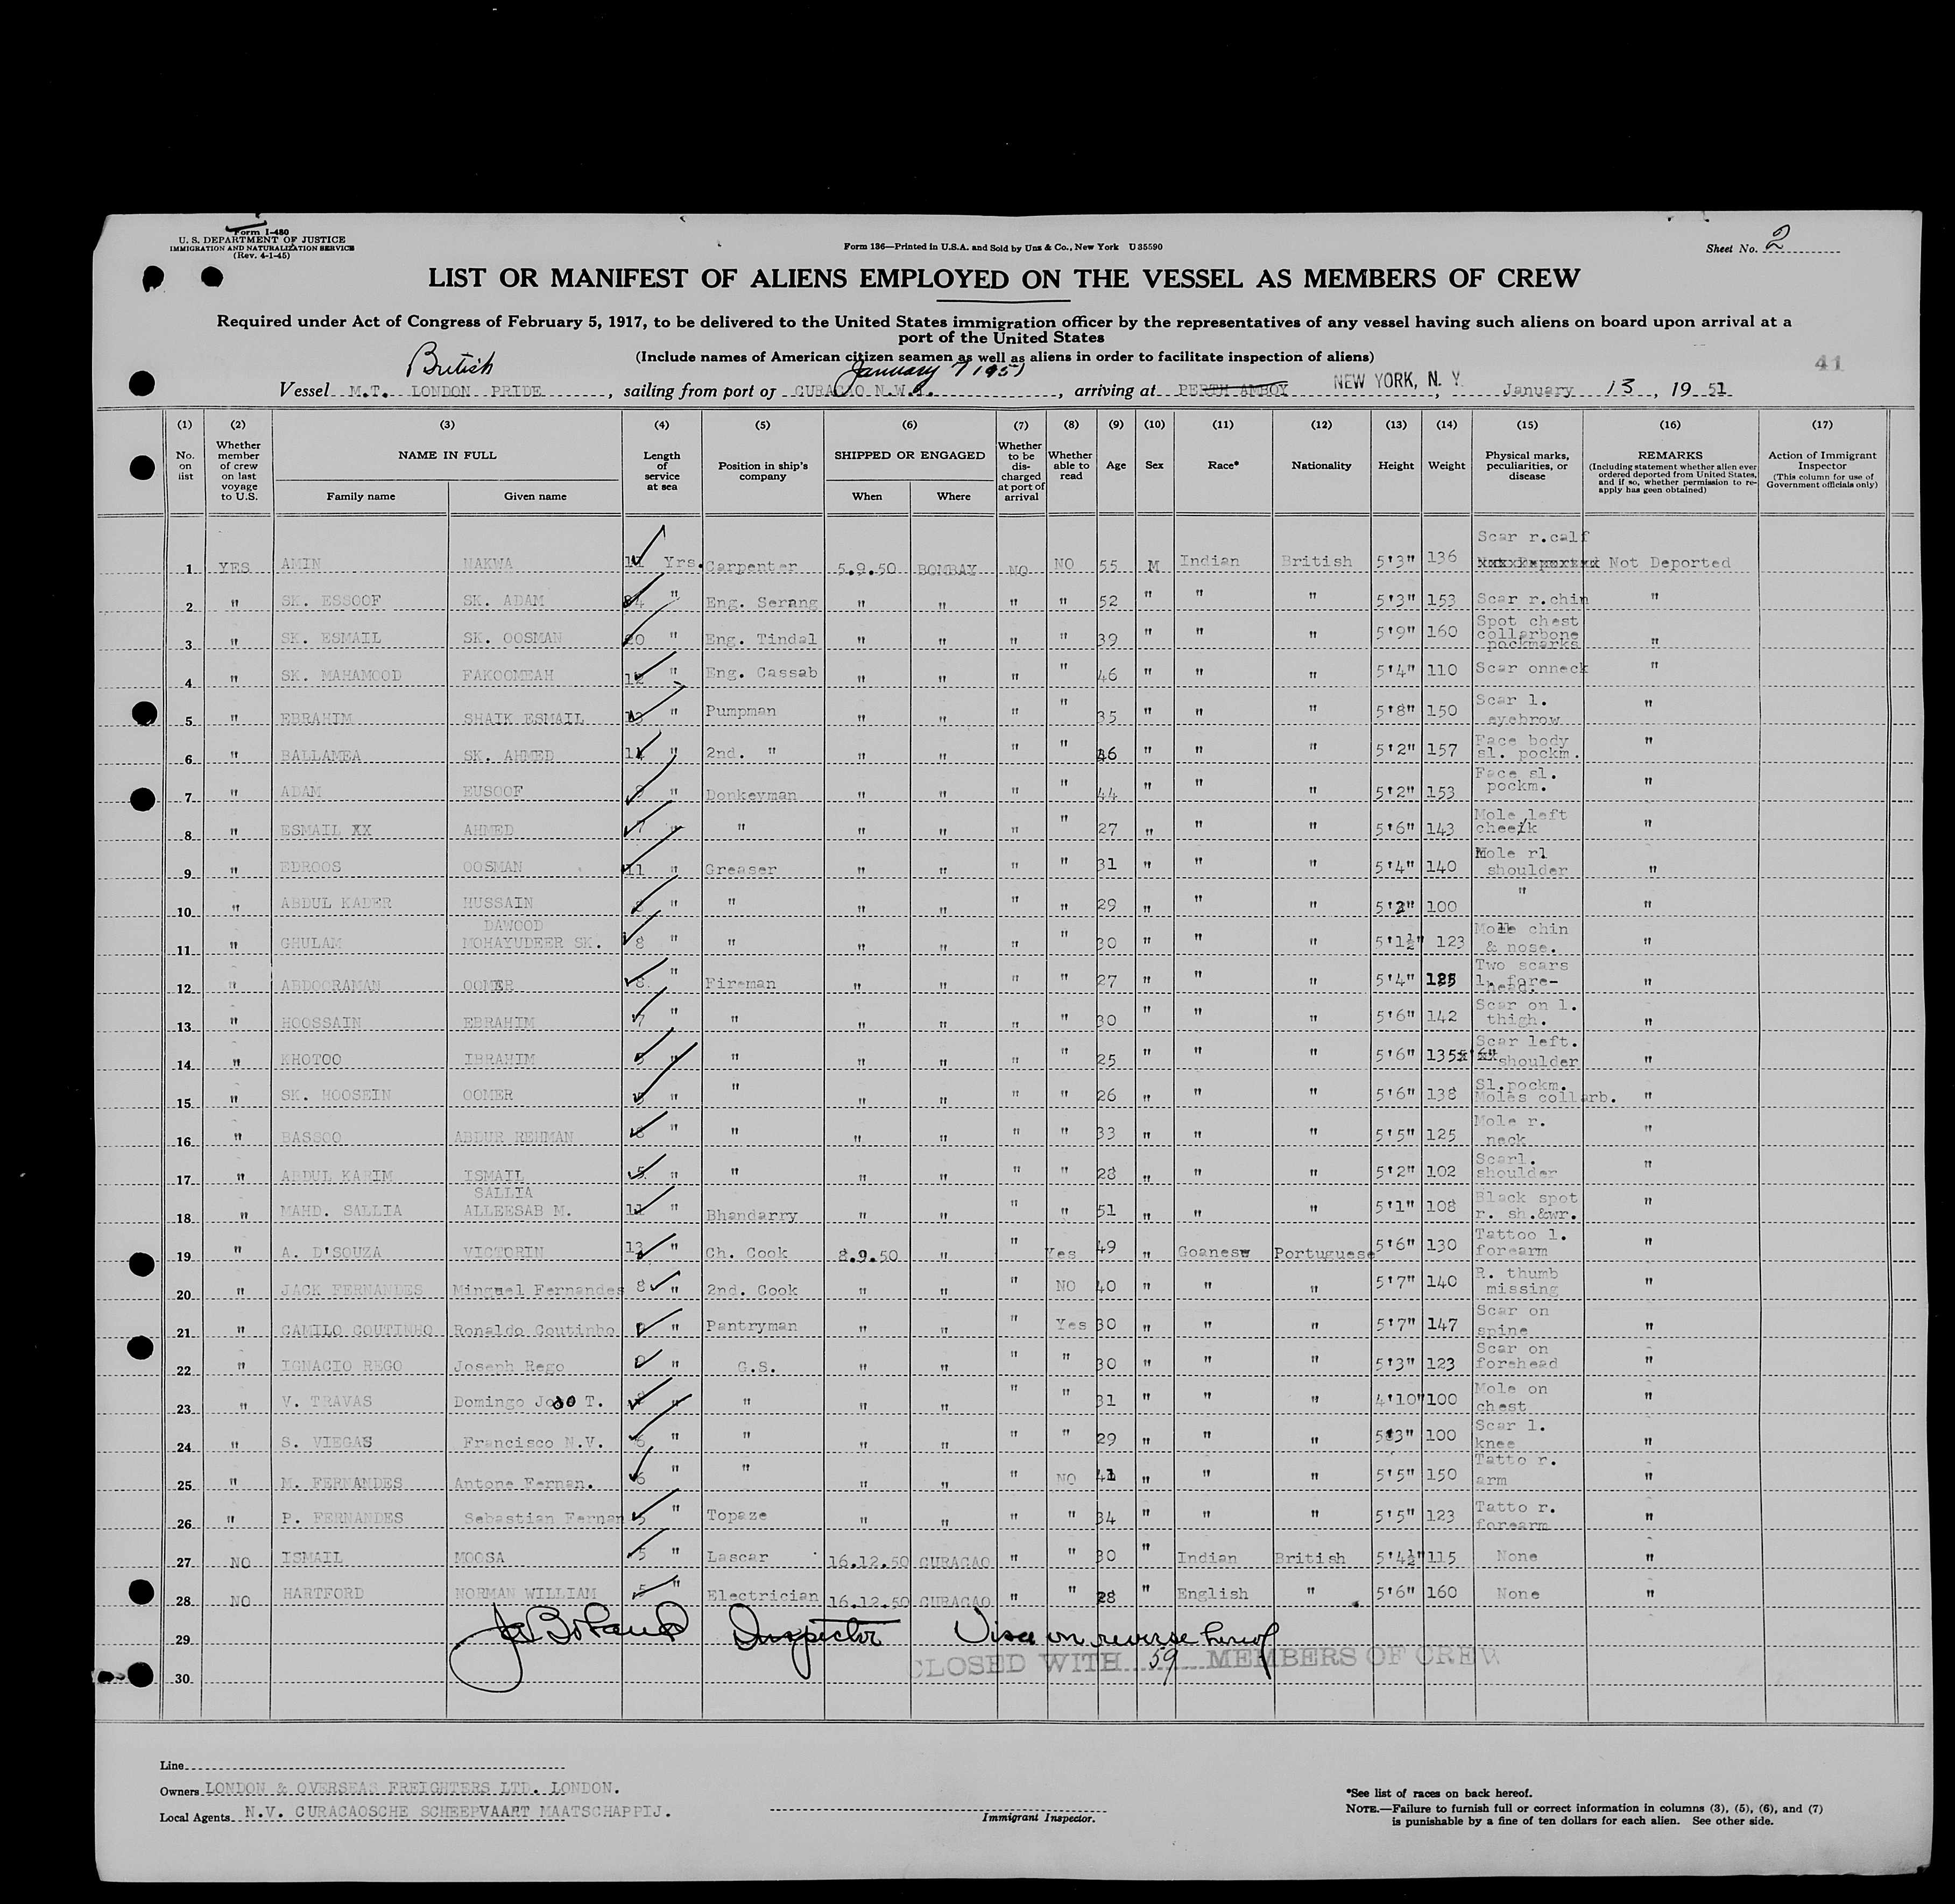 Form I-480
U. S. DEPARTMENT OF JUSTICE
IMMIGRATION AND NATURALIZATION SERVICE
(Rev. 4-1-45)
Form 136—Printed in U.S.A. and Sold by Unz & Co., New York U 35590
Sheet No. 2
LIST OR MANIFEST OF ALIENS EMPLOYED ON THE VESSEL AS MEMBERS OF CREW
Required under Act of Congress of February 5, 1917, to be delivered to the United States immigration officer by the representatives of any vessel having such aliens on board upon arrival at a
port of the United States
(Include names of American citizen seamen as well as aliens in order to facilitate inspection of aliens)
41
British
January 7 1951
Vessel M.T. LONDON PRIDE, sailing from port of CURACAO N.W.I., arriving at PERTH AMBOY NEW YORK, N. Y., January 13, 19 51
(1) (2) (3) (4) (5) (6) (7) (8) (9) (10) (11) (12) (13) (14) (15) (16) (17)
No. on list
Whether member of crew on last voyage to U.S.
NAME IN FULL
Family name
Given name
Length of service at sea
Position in ship's company
SHIPPED OR ENGAGED
When
Where
Whether to be discharged at port of arrival
Whether able to read
Age
Sex
Race*
Nationality
Height
Weight
Physical marks, peculiarities, or disease
REMARKS
(Including statement whether alien ever ordered deported from United States, and if so, whether permission to re-apply has geen obtained)
Action of Immigrant Inspector
(This column for use of Government officials only)
1 YES AMIN MAKWA Yrs. Carpenter 5.9.50 BOMBAY NO NO 55 M Indian British 5'3" 136 Scar r.calf Not Deported
2 " SK. ESSOOF SK. ADAM " Eng. Serang " " " " 52 " " " 5'3" 153 Scar r.chin "
3 " SK. ESMAIL SK. OOSMAN 20 " Eng. Tindal " " " " 39 " " " 5'9" 160 Spot chest collarbone pockmarks "
4 " SK. MAHAMOOD FAKOOMEAH 12 " Eng. Cassab " " " " 46 " " " 5'4" 110 Scar onneck "
5 " EBRAHIM SHAIK ESMAIL 13 " Pumpman " " " " 35 " " " 5'8" 150 Scar l. eyebrow "
6 " BALLAMEA SK. AHMED " 2nd. " " " " " 36 " " " 5'2" 157 Face body sl. pockm. "
7 " ADAM EUSOOF " Donkeyman " " " " 44 " " " 5'2" 153 Face sl. pockm. "
8 " ESMAIL XX AHMED 7 " " " " " " 27 " " " 5'6" 143 Mole left cheek "
9 " EDROOS OOSMAN 11 " Greaser " " " " 31 " " " 5'4" 140 Mole rl shoulder "
10 " ABDUL KADER HUSSAIN " " " " " " 29 " " " 5'2" 100 " "
11 " GHULAM DAWOOD MOHAYUDEER SK. 8 " " " " " " 30 " " " 5'1½" 123 Mole chin & nose. "
12 " ABDOORAMAN OOMER 8 " Fireman " " " " 27 " " " 5'4" 125 Two scars l. fore-head. "
13 " HOOSSAIN EBRAHIM 7 " " " " " " 30 " " " 5'6" 142 Scar on l. thigh. "
14 " KHOTOO IBRAHIM " " " " " " 25 " " " 5'6" 135 Scar left. shoulder "
15 " SK. HOOSEIN OOMER 5 " " " " " " 26 " " " 5'6" 138 Sl.pockm. Moles collarb. "
16 " BASSOO ABDUR REHMAN 8 " " " " " " 33 " " " 5'5" 125 Mole r. neck "
17 " ABDUL KARIM ISMAIL 5 " " " " " " 28 " " " 5'2" 102 Scarl. shoulder "
18 " MAHD. SALLIA SALLIA ALLEESAB M. 11 " Bhandarry " " " " 51 " " " 5'1" 108 Black spot r. sh.&wr. "
19 " A. D'SOUZA VICTORIN 13 " Ch. Cook 8.9.50 " " Yes 49 " Goanese Portuguese 5'6" 130 Tattoo l. forearm "
20 " JACK FERNANDES Minguel Fernandes 8 " 2nd. Cook " " " NO 40 " " " 5'7" 140 R. thumb missing "
21 " CAMILO COUTINHO Ronaldo Coutinho " Pantryman " " " Yes 30 " " " 5'7" 147 Scar on spine "
22 " IGNACIO REGO Joseph Rego " G.S. " " " " 30 " " " 5'3" 123 Scar on forehead "
23 " V. TRAVAS Domingo Joao T. " " " " " " 31 " " " 4'10" 100 Mole on chest "
24 " S. VIEGAS Francisco N.V. 6 " " " " " " 29 " " " 5'3" 100 Scar l. knee "
25 " M. FERNANDES Antone Fernan. 6 " " " " " NO 41 " " " 5'5" 150 Tatto r. arm "
26 " P. FERNANDES Sebastian Fernan 5 " Topaze " " " " 34 " " " 5'5" 123 Tatto r. forearm "
27 NO ISMAIL MOOSA 5 " Lascar 16.12.50 CURACAO " " 30 " Indian British 5'4½" 115 None "
28 NO HARTFORD NORMAN WILLIAM 5 " Electrician 16.12.50 CURACAO " " 28 " English " 5'6" 160 None "
29 Inspector Visa on reverse hereof
30 CLOSED WITH 59 MEMBERS OF CREW
Line
Owners LONDON & OVERSEAS FREIGHTERS LTD. LONDON.
Local Agents N.V. CURACAOSCHE SCHEEPVAART MAATSCHAPPIJ.
Immigrant Inspector.
*See list of races on back hereof.
NOTE.—Failure to furnish full or correct information in columns (3), (5), (6), and (7)
is punishable by a fine of ten dollars for each alien. See other side.